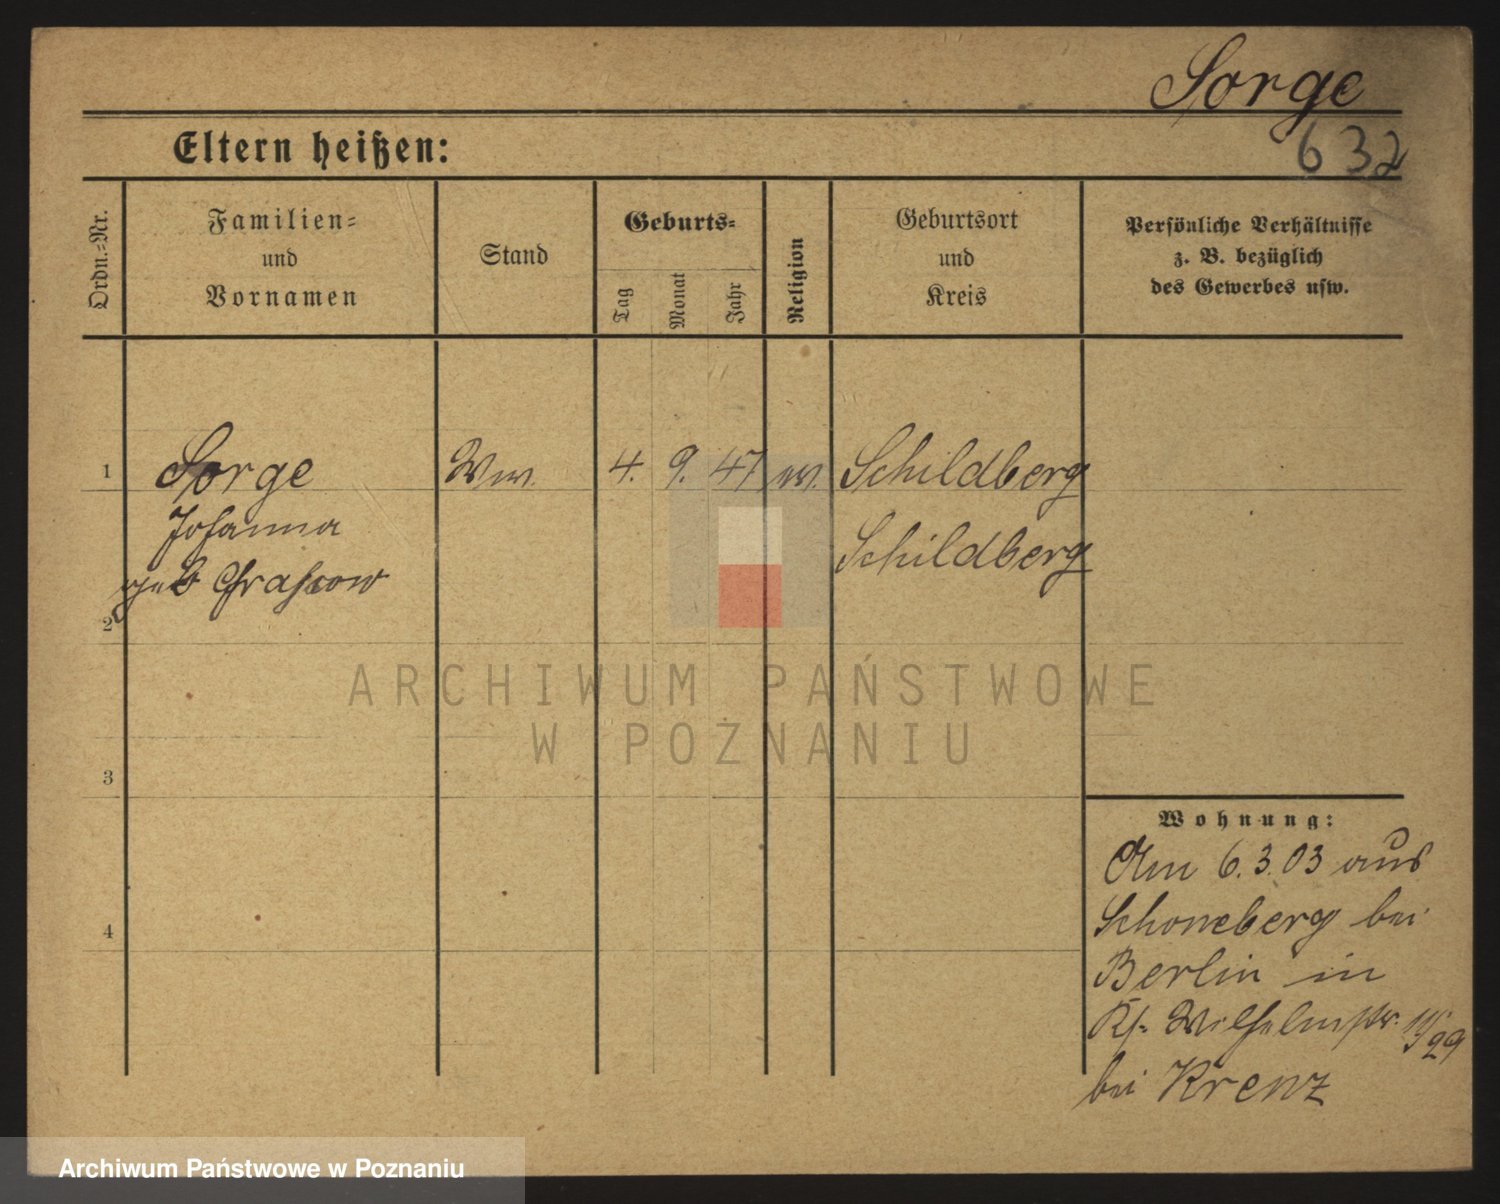 Sorge
632
Eltern heißen:
Ordn.=Nr.
Familien=
und
Vornamen
Stand
Geburts=
Tag
Monat
Jahr
Religion
Geburtsort
und
Kreis
Persönliche Verhältnisse
z. B. bezüglich
des Gewerbes usw.
1 Sorge Ww. 4. 9. 47. ev. Schildberg
Johanna
Schildberg
geb
2
ARCHIWUM PAŃSTWOWE
W POZNANIU
3
Wohnung:
Am 6.3.03 aus
Schoneberg bei
4
Berlin in
Wilhelmstr.
bei Krenz
Archiwum Państwowe w Poznaniu